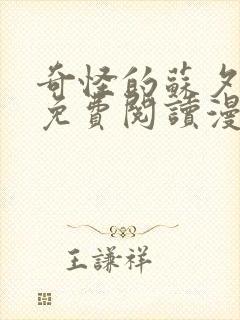 奇怪的蘇夕
免費閱讀漫
王謙祥